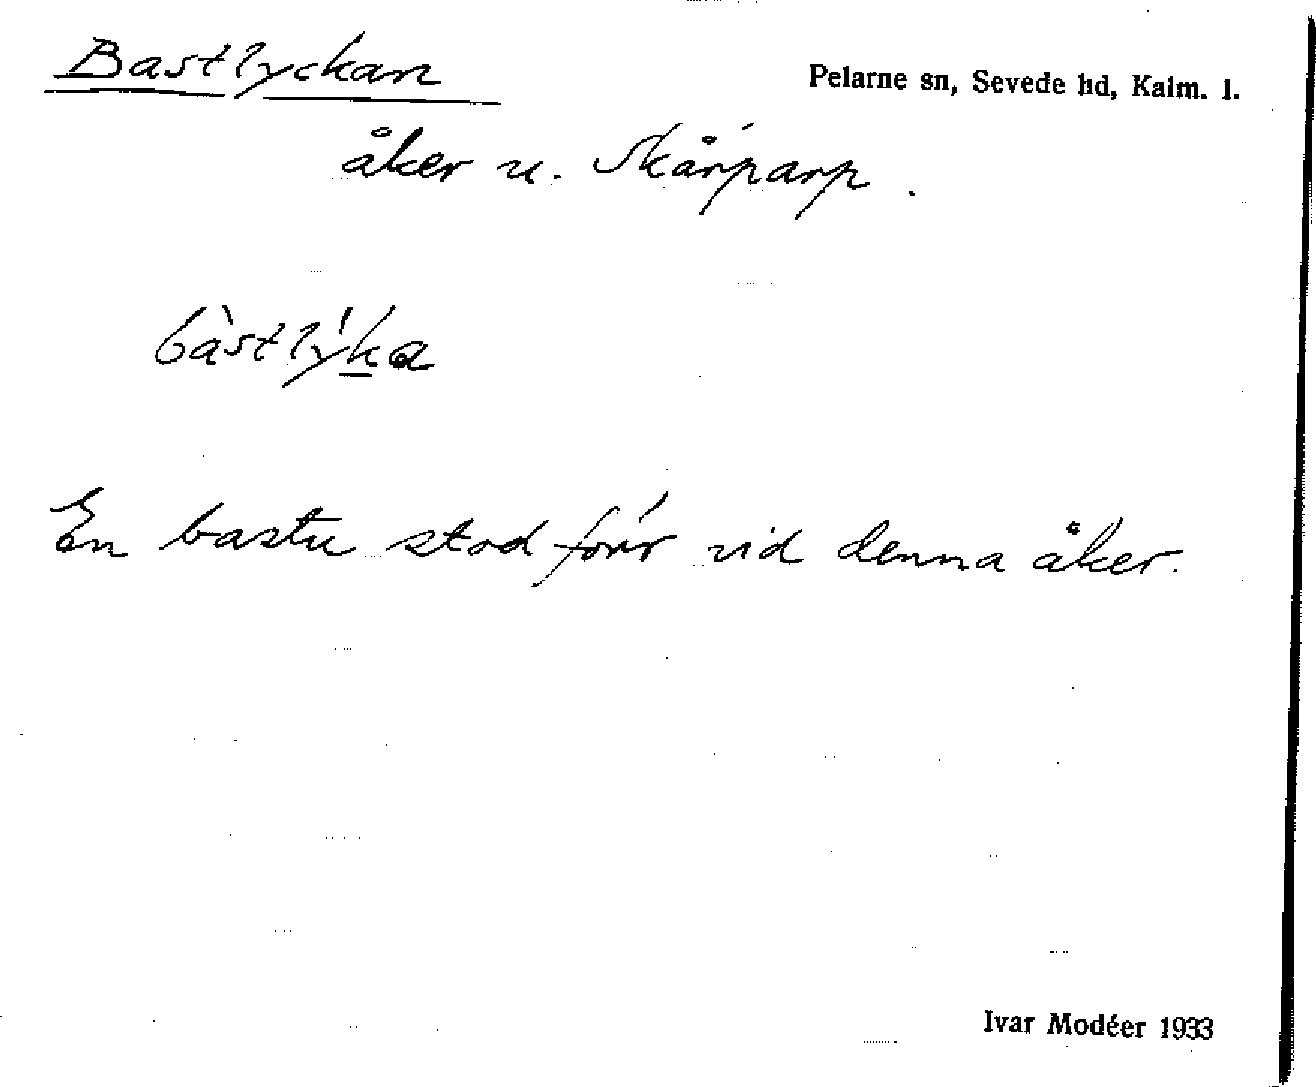 Bastlyckan
Pelarne sn, Sevede hd, Kalm. l.
åker u. Skårparp.
bàstlýka
En bastu stod förr vid denna åker.
Ivar Modéer 1933